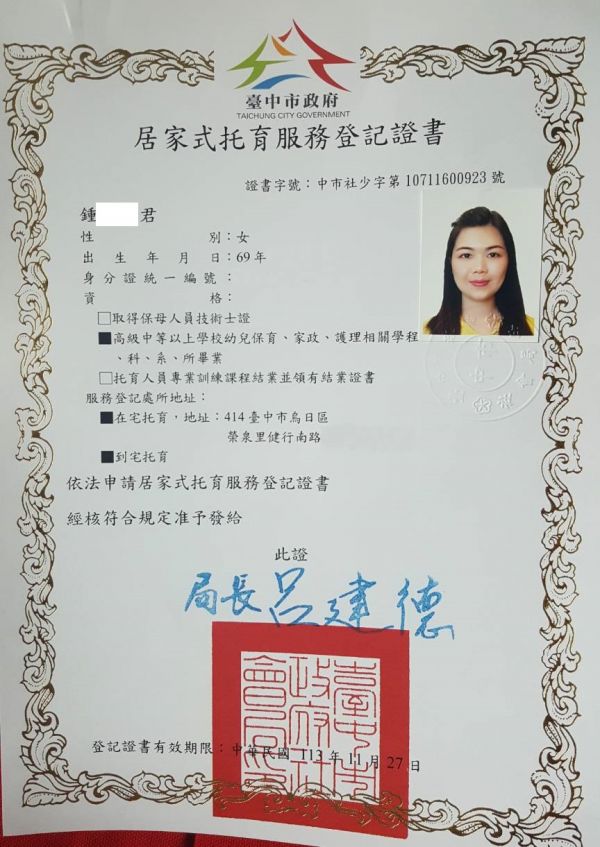 臺中市政府
TAICHUNG CITY GOVERNMENT
居家式托育服務登記證書
證書字號：中市社少字第10711600923號
鍾 君
性別：女
出生年月日：69年
身分證統一編號：
資格：
□取得保母人員技術士證
■高級中等以上學校幼兒保育、家政、護理相關學程
、科、系、所畢業
□托育人員專業訓練課程結業並領有結業證書
服務登記處所地址：
■在宅托育，地址：414臺中市烏日區
榮泉里健行南路
■到宅托育
依法申請居家式托育服務登記證書
經核符合規定准予發給
此證
局長呂建德
臺中市政府社會局印
登記證書有效期限：中華民國 113年11月27日